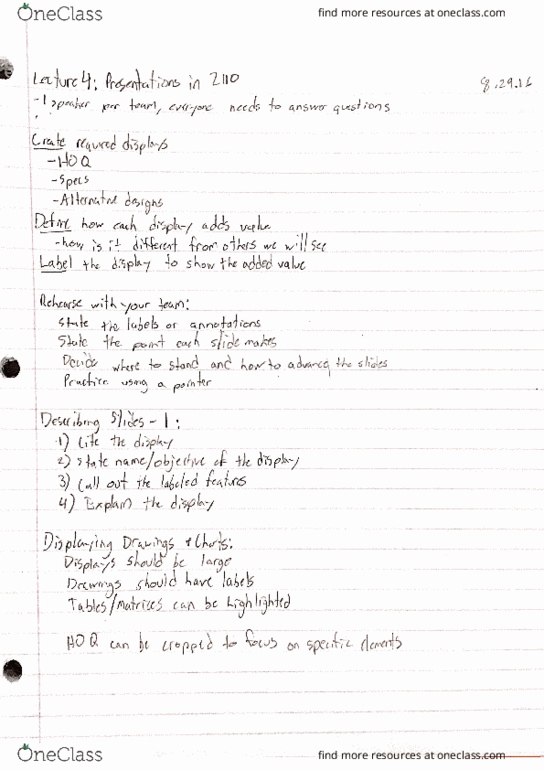 OneClass
find more resources at oneclass.com
Lecture 4: Presentations in 2110
8.29.16
-1 speaker per team, everyone needs to answer questions
Create required displays
-HOQ
-Specs
-Alternative designs
Define how each display adds value
-how is it different from others we will see
Label the display to show the added value
Rehearse with your team:
State the labels or annotations
State the point each slide makes
Decide where to stand and how to advance the slides
Practice using a pointer
Describing Slides - 1:
1) Cite the display
2) State name/objective of the display
3) Call out the labeled features
4) Explain the display
Displaying Drawings + Charts:
Displays should be large
Drawings should have labels
Tables/matrices can be highlighted
HOQ can be cropped to focus on specific elements
OneClass
find more resources at oneclass.com